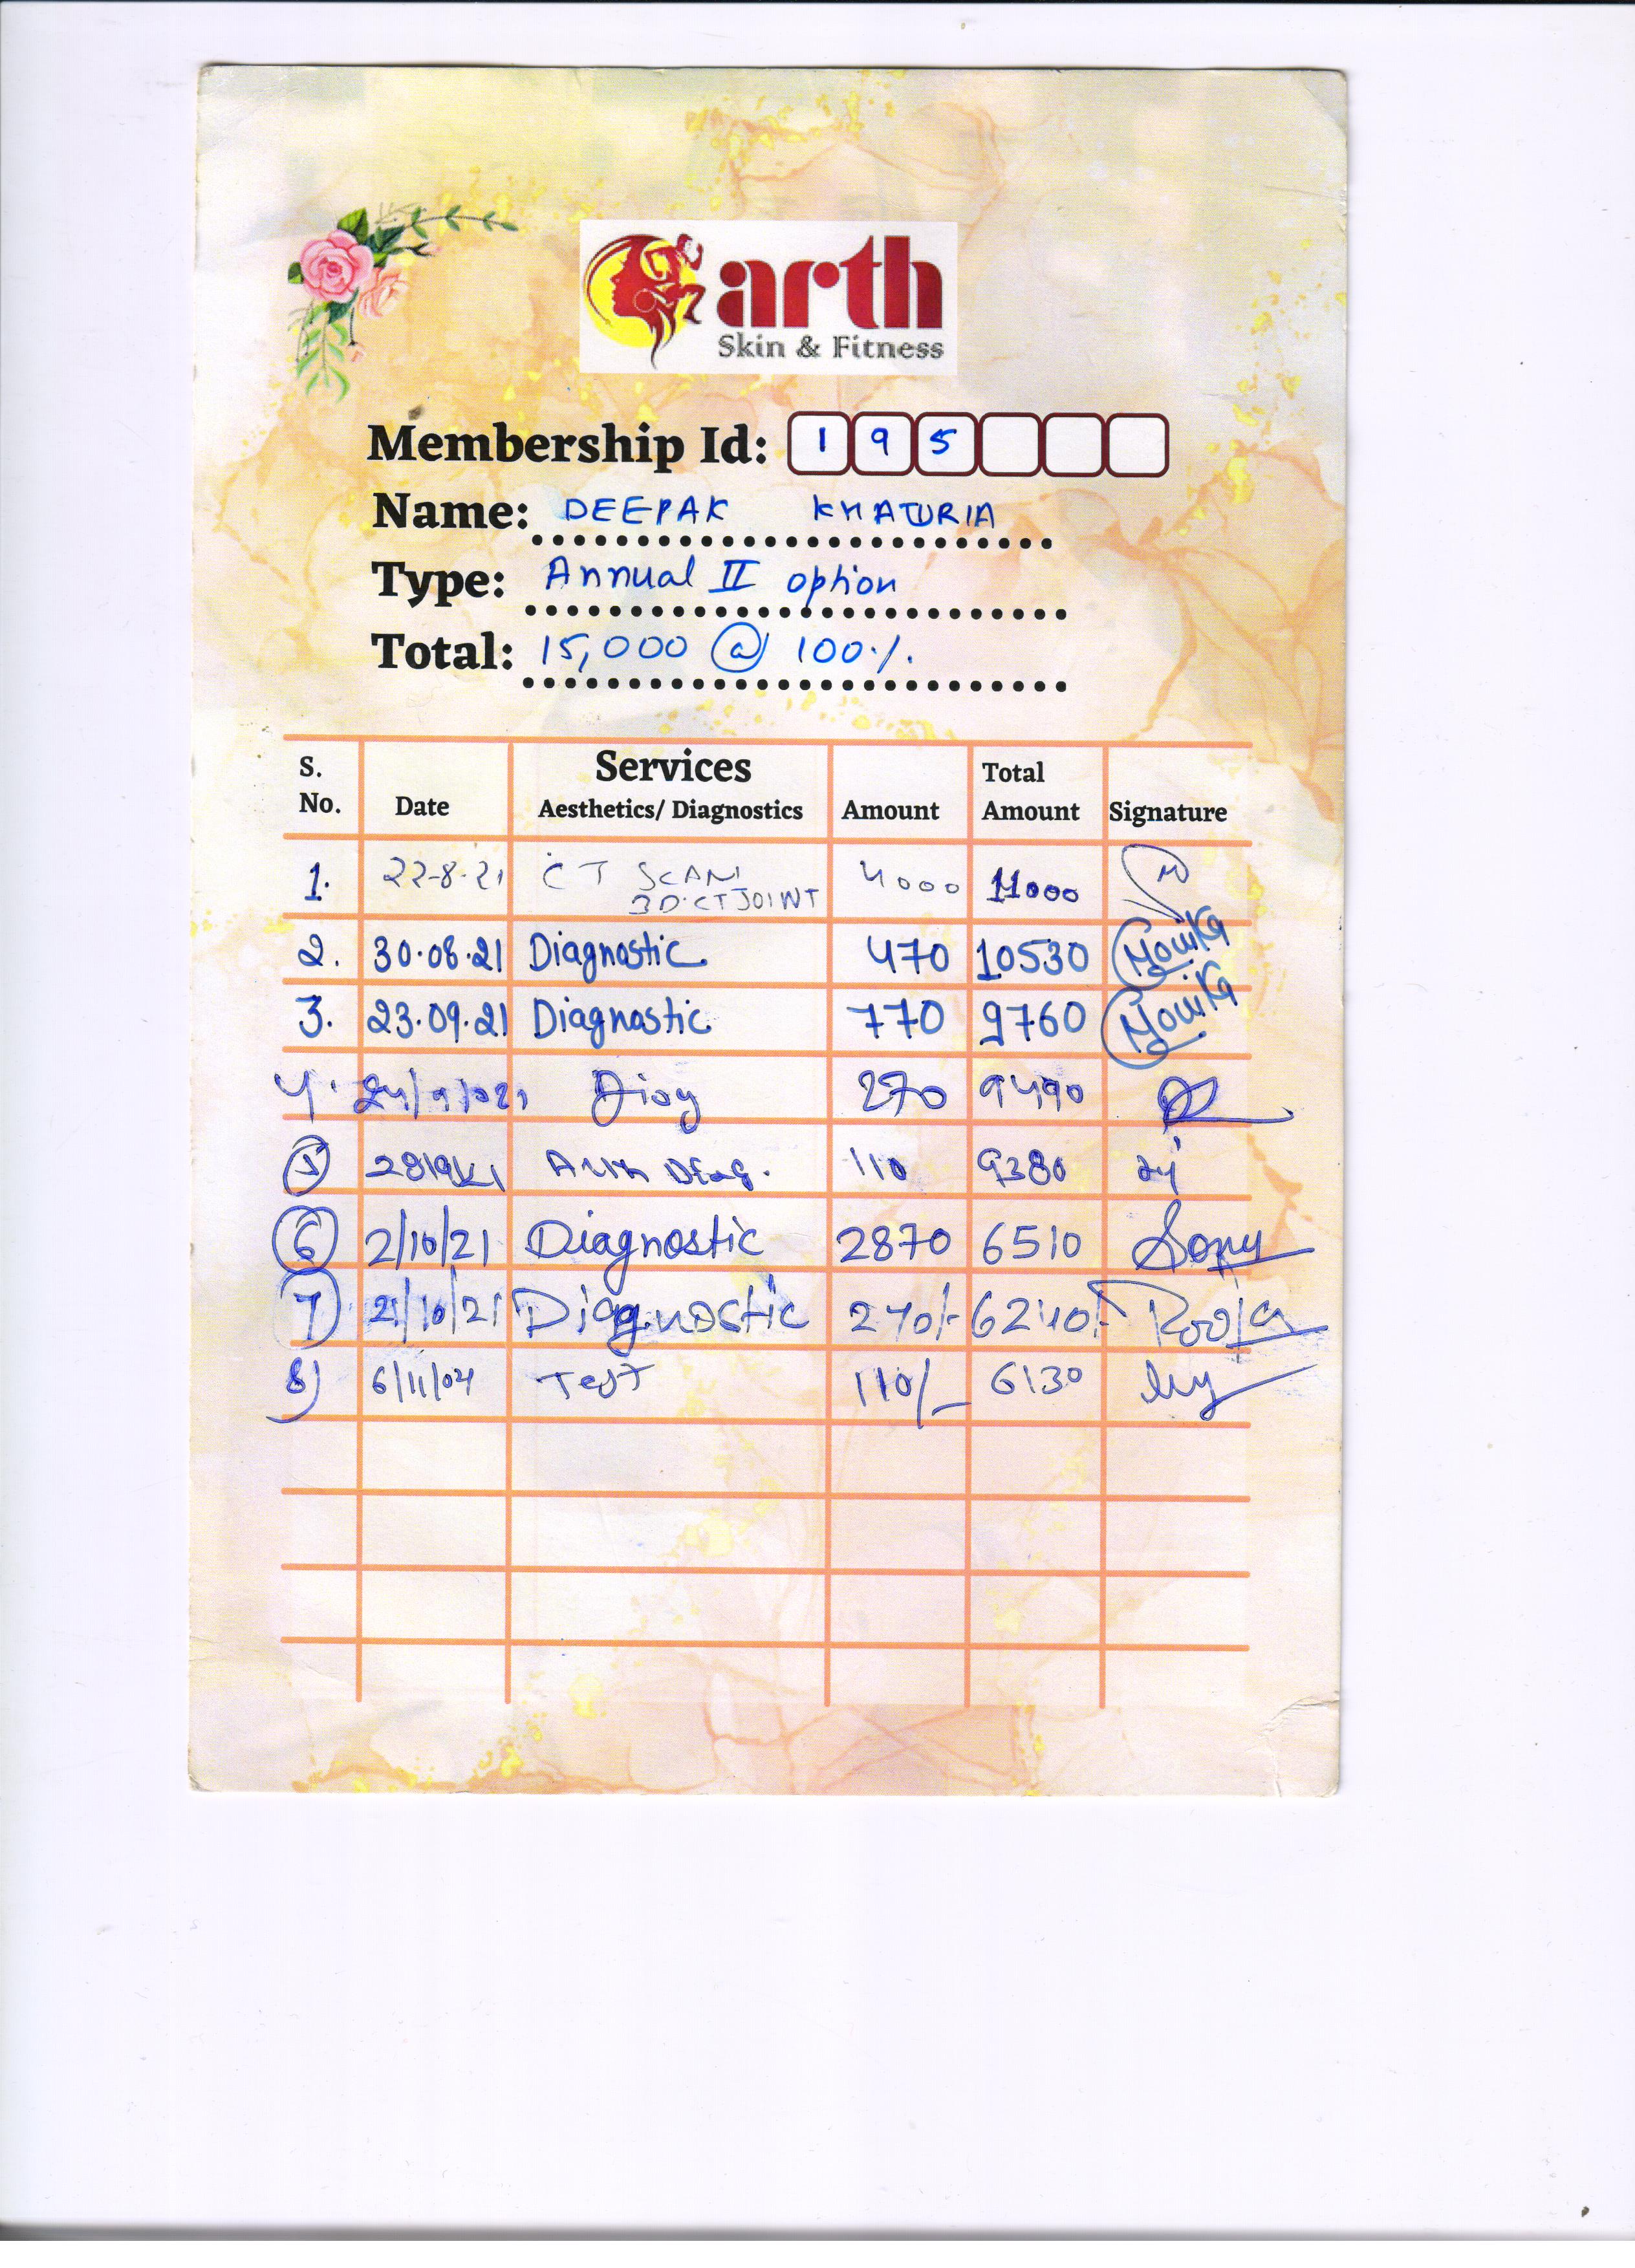 arth
Skin & Fitness
Membership Id: 1 9 5
Name: DEEPAK KHATURIA
Type: Annual II option
Total: 15,000 @ 100%
S. No. Date Services Aesthetics/ Diagnostics Amount Total Amount Signature
1. 22-8-21 CT SCAN 3D CT JOINT 4000 11000
2. 30.08.21 Diagnostic 470 10530 Monika
3. 23.09.21 Diagnostic 770 9760 Monika
4. 24/9/021 Diag 270 9490
5 28/9/21 Arth Diag. 110 9380
6 2/10/21 Diagnostic 2870 6510 Sonu
7) 21/10/21 Diagnostic 270/- 6240/- Pooja
8) 6/11/021 Test 110/- 6130